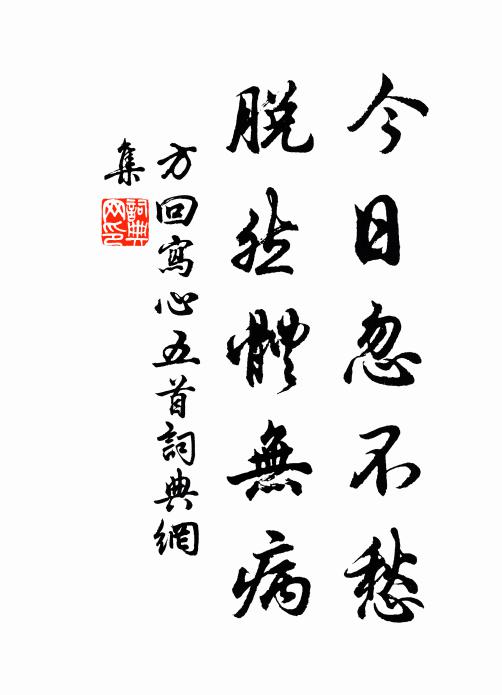 今日忽不愁
脱然體無病
方回寫心五首詞典網
集
詞典
网印